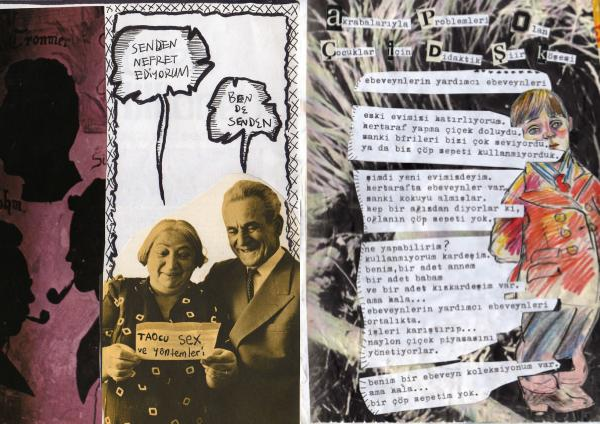 Cronmer
ohm.
SENDEN
NEFRET
EDİYORUM
BEN
DE
SENDEN
TAOCU SEX
ve yöntemleri
akrabalarıyla Problemleri Olan
Çocuklar için Didaktik Şiir köşesi
ebeveynlerin yardımcı ebeveynleri
eski evimizi katırlıyorum.
hertaraf yapma çiçek doluydu.
sanki bfrileri bizi çok seviyordu,
ya da biz çöp sepeti kullanmıyorduk.
şimdi yeni evimizdeyim.
hertarafta ebeveynler var.
sanki kokuyu almışlar.
hep bir ağızdan diyorlar ki,
oğlanın çöp sepeti yok.
ne yapabilirim?
kullanmıyorum kardeşim.
benim,bir adet annem
bir adet babam
ve bir adet kızkardeşim var.
ama kala...
ebeveynlerin yardımcı ebeveynleri
ortalıkta.
işleri karıştırıp...
naylon çiçek piyasasını
yönetiyorlar.
benim bir ebeveyn koleksiyonum var.
ama kala...
bir çöp sepetim yok.